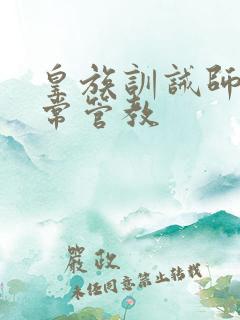 皇族訓誡師日
常管教
嚴政
未任同意禁止转载